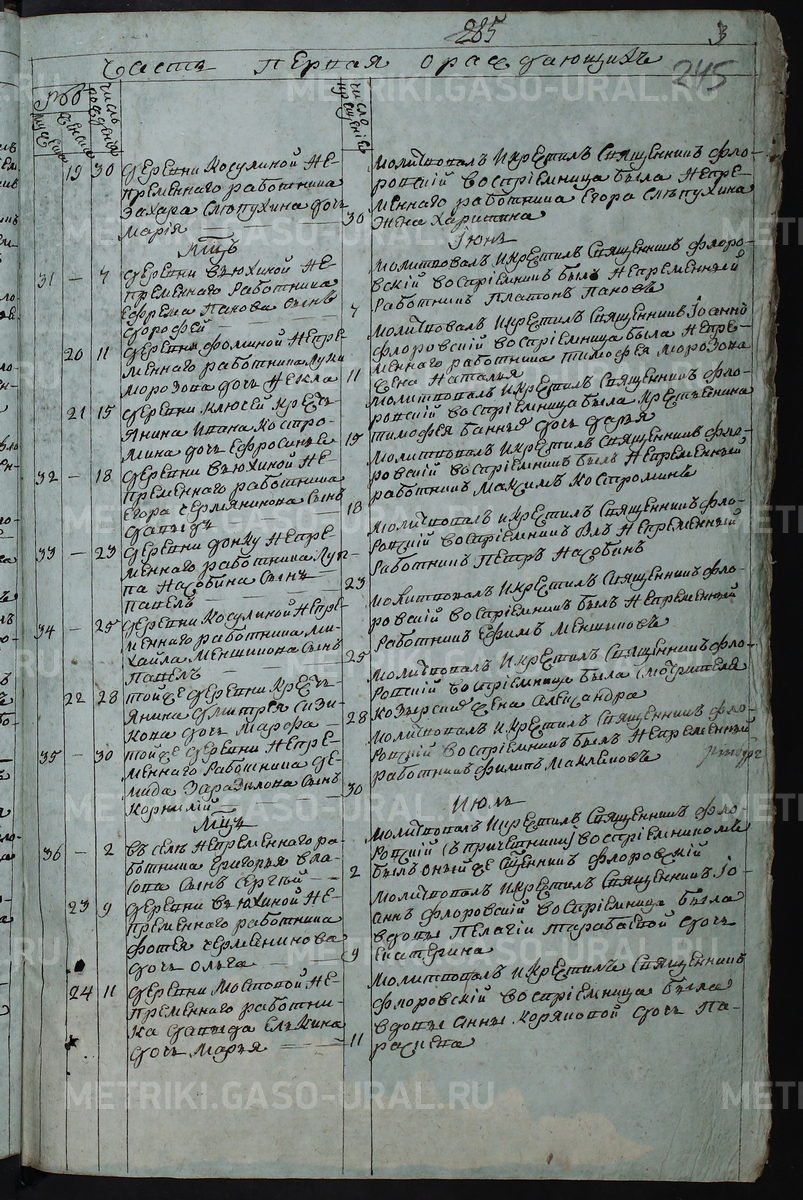 285
3
245
Часть первая о раждающихъ
число рожденія
число крещенія
мужеска
женска
19 30 деревни Косулиной не-
пременнаго работника
Захара Слѣпухина дочь
Марія
30
Молитвовалъ и крѣстилъ Священникъ Фло-
ровскій воспріемница была непре-
меннаго работника Егора Слѣпухина
жена Харитина
Мцъ
Іюнь
31 — 7 деревни Вѣюхиной не-
пременнаго работника
Ефрема Панова сынъ
Дорофей
7
Молитвовалъ и крѣстилъ Священникъ Флоро-
вскій воспріемникъ былъ непременный
работникъ Платонъ Пановъ
20 11 деревни Фоминой непре-
меннаго работника Луки
Морозова дочь Фекла
11
Молитвовалъ и крѣстилъ Священникъ Іоаннъ
Флоровскій воспріемница была непре-
меннаго работника Тимофея Морозова
жена Наталья
21 15 деревни Ключей крестъ-
янина Ивана Костро-
мина дочь Ефросинья
15
Молитвовалъ и крѣстилъ Священникъ Фло-
ровскій воспріемница была крестьянина
Тимофея дочь Дарья
32 — 18 деревни Вѣюхиной не-
пременнаго работника
Егора Чермянинова сынъ
Давыдъ
18
Молитвовалъ и крѣстилъ Священникъ Фло-
ровскій воспріемникъ былъ непременный
работникъ Максимъ Костроминъ
33 — 23 деревни непре-
меннаго работника Луп-
па Назобина сынъ
Павелъ
23
Молитвовалъ и крѣстилъ Священникъ Фло-
ровскій воспріемникъ былъ непременный
работникъ Петръ Назобинъ
34 — 25 деревни Косулиной непре-
меннаго работника Ми-
хайла Меншикова сынъ
Павелъ
25
Молитвовалъ и крѣстилъ Священникъ Фло-
ровскій воспріемникъ былъ непременный
работникъ Ефимъ Меншиковъ
22 28 той же деревни крестъ-
янина Дмитрея Сизи-
кова дочь Марфа
28
Молитвовалъ и крѣстилъ Священникъ Фло-
ровскій воспріемница была смотрителя
жена Александра
35 — 30 той же деревни непре-
меннаго работника Де-
мида сынъ
Корнилий
30
Молитвовалъ и крѣстилъ Священникъ Фло-
ровскій воспріемникъ былъ непременный
работникъ Филипъ
Мцъ
Июль
36 — 2 въ селѣ непременнаго ра-
ботника Григорья Вла-
сова сынъ Сергѣй
2
Молитвовалъ и крѣстилъ Священникъ Фло-
ровскій (съ причетники) воспріемникомъ
былъ онъ же Сщенникъ Флоровскій
23 9 деревни Вѣюхиной не-
пременнаго работника
Фотея Черменинова
дочь Ольга
9
Молитвовалъ и крѣстилъ Священникъ Іо-
аннъ Флоровскій воспріемница была
вдовы Пелагіи Тарабаевой дочь
Екатерина
24 11 деревни Мостовой не-
пременнаго работни-
ка Давыда Елькина
дочь Марья
11
Молитвовалъ и крѣстилъ Священникъ
Флоровскій воспріемница была
вдовы Анны Коряковой дочь Па-
расковa
METRIKI.GASO-URAL.RU